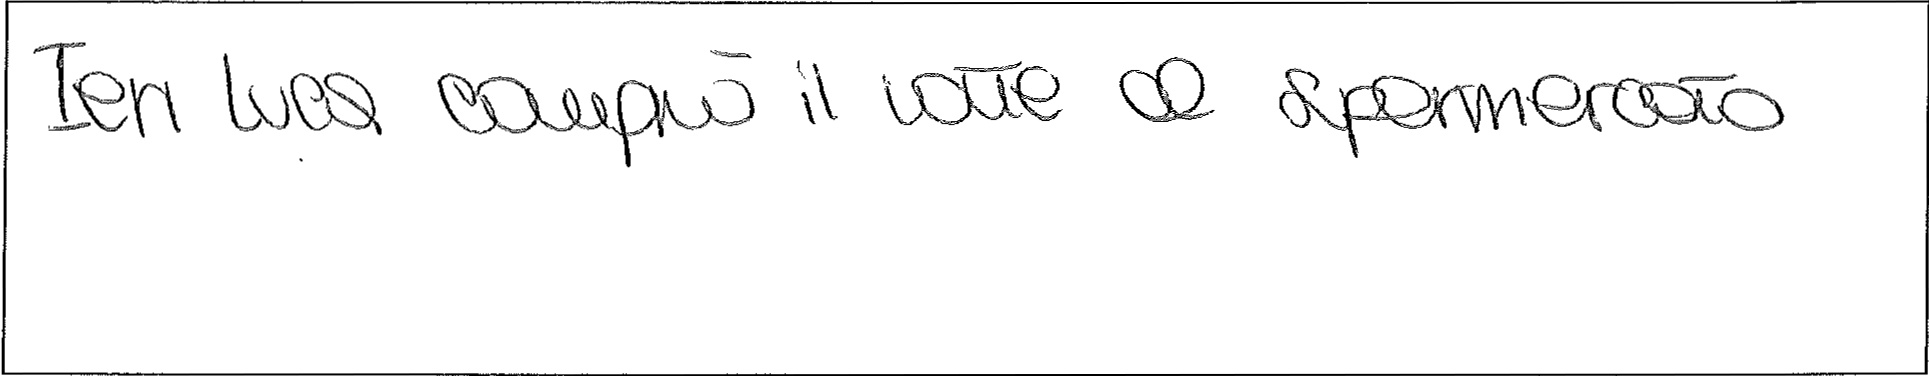 Ieri Luca comprò il latte al supermercato